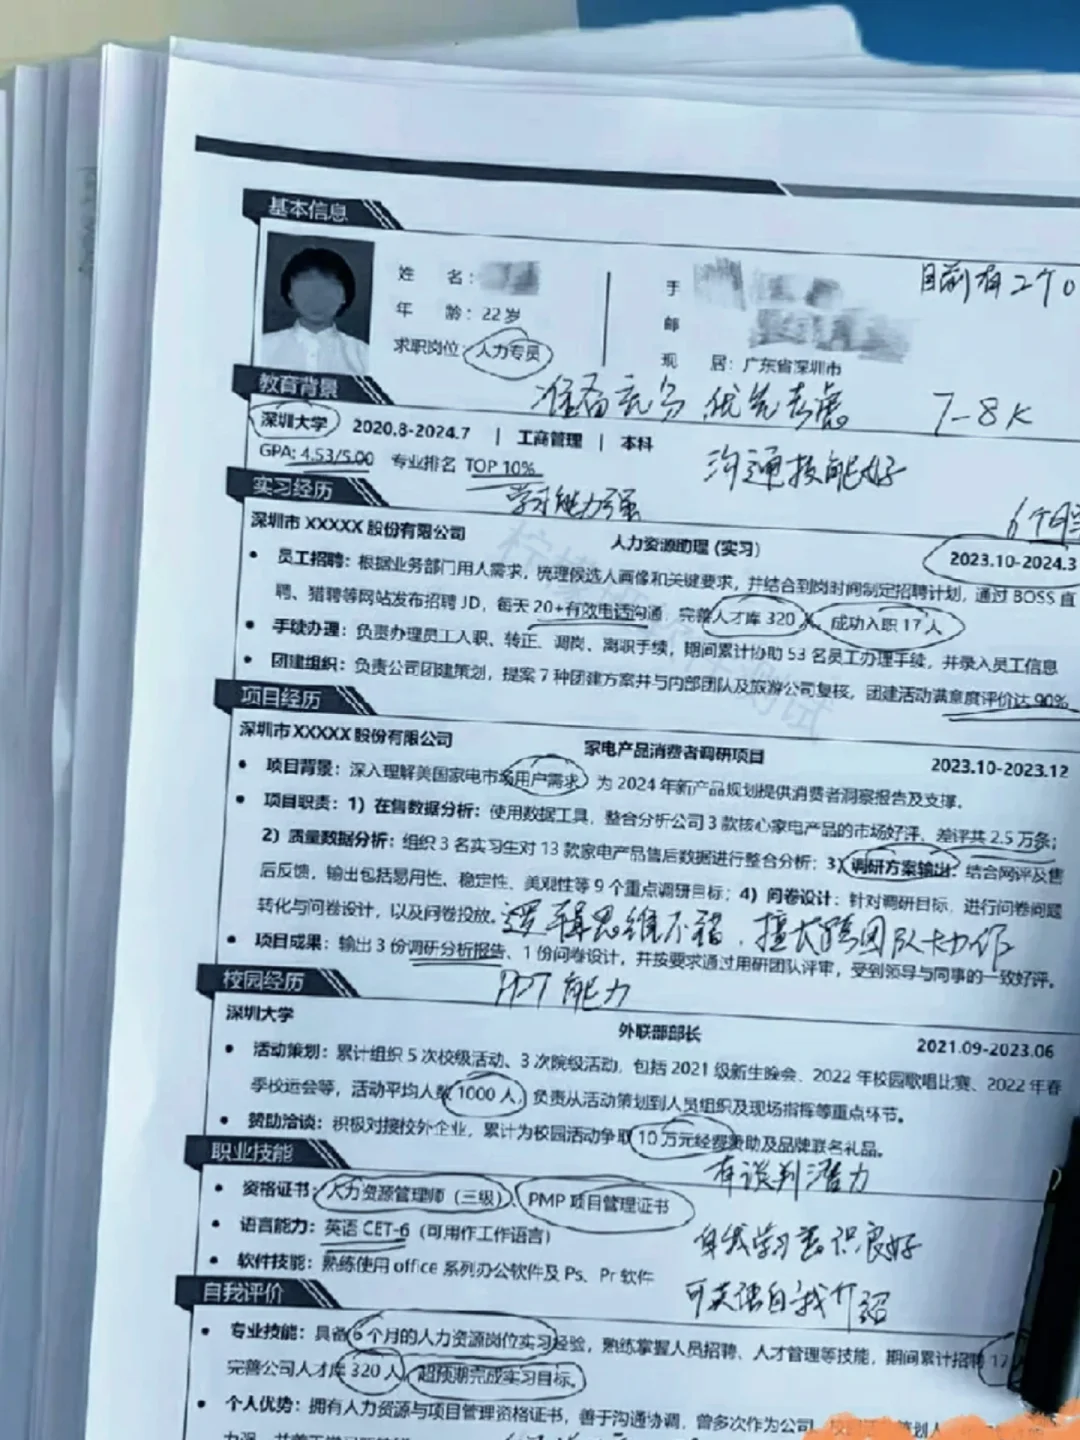 基本信息
姓 名：
年 龄：22岁
求职岗位：人力专员
手
邮
现 居：广东省深圳市
目前有2个
准备充分 优先考虑 7-8K
教育背景
深圳大学 2020.8-2024.7 | 工商管理 | 本科
GPA: 4.53/5.00 专业排名 TOP 10%
沟通技能好
学习能力强
实习经历
6个月
深圳市XXXXX股份有限公司 人力资源助理(实习) 2023.10-2024.3
• 员工招聘：根据业务部门用人需求，梳理候选人画像和关键要求，并结合到岗时间制定招聘计划，通过BOSS直
聘、猎聘等网站发布招聘JD，每天20+有效电话沟通，完善人才库320人，成功入职17人
• 手续办理：负责办理员工入职、转正、调岗、离职手续，期间累计协助53名员工办理手续，并录入员工信息
• 团建组织：负责公司团建策划，提案7种团建方案并与内部团队及旅游公司复核，团建活动满意度评价达90%
项目经历
深圳市XXXXX股份有限公司 家电产品消费者调研项目 2023.10-2023.12
• 项目背景：深入理解美国家电市场用户需求，为2024年新产品规划提供消费者洞察报告及支撑。
• 项目职责：1）在售数据分析：使用数据工具，整合分析公司3款核心家电产品的市场好评、差评共2.5万条；
2）质量数据分析：组织3名实习生对13款家电产品售后数据进行整合分析；3）调研方案输出：结合网评及售
后反馈，输出包括易用性、稳定性、美观性等9个重点调研目标；4）问卷设计：针对调研目标，进行问卷问题
转化与问卷设计，以及问卷投放。
逻辑思维不错，擅长跨团队协作
• 项目成果：输出3份调研分析报告、1份问卷设计，并按要求通过用研团队评审，受到领导与同事的一致好评。
PPT能力
校园经历
深圳大学 外联部部长 2021.09-2023.06
• 活动策划：累计组织5次校级活动、3次院级活动，包括2021级新生晚会、2022年校园歌唱比赛、2022年春
季校运会等，活动平均人数1000人，负责从活动策划到人员组织及现场指挥等重点环节。
• 赞助洽谈：积极对接校外企业，累计为校园活动争取10万元经费赞助及品牌联名礼品。
有谈判潜力
职业技能
• 资格证书：人力资源管理师（三级）、PMP项目管理证书
• 语言能力：英语CET-6（可用作工作语言）
自我学习意识良好
• 软件技能：熟练使用office系列办公软件及Ps、Pr软件
可英语自我介绍
自我评价
• 专业技能：具备6个月的人力资源岗位实习经验，熟练掌握人员招聘、人才管理等技能，期间累计招聘17
完善公司人才库320人，超预期完成实习目标。
• 个人优势：拥有人力资源与项目管理资格证书，善于沟通协调，曾多次作为公司